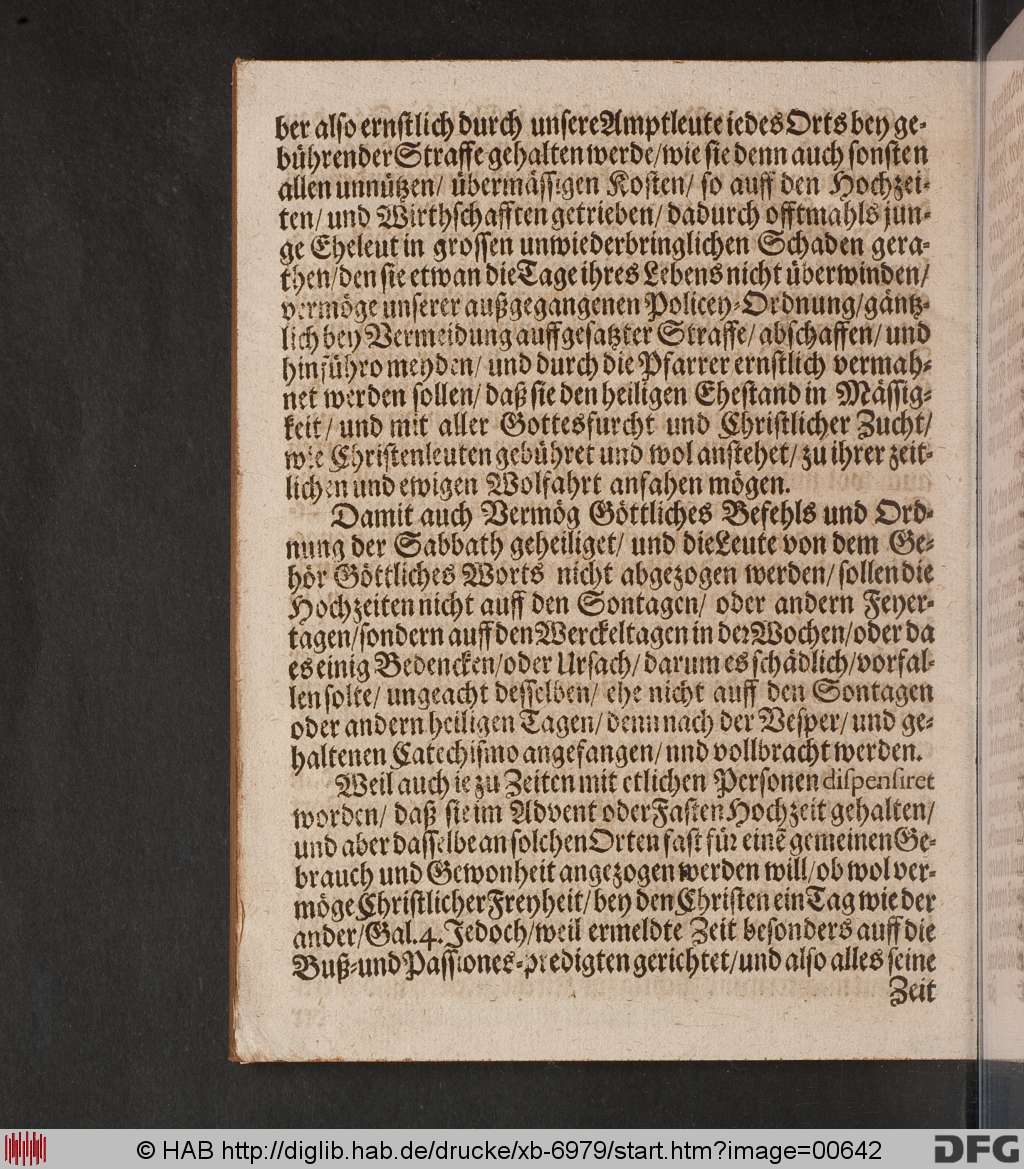 ber also ernstlich durch unsere Amptleute iedes Orts bey ge-
bührender Straffe gehalten werde/ wie sie denn auch sonsten
allen unnützen/ übermässigen Kosten/ so auff den Hochzei-
ten/ und Wirthschafften getrieben/ dadurch offtmahls jun-
ge Eheleut in grossen unwiederbringlichen Schaden gera-
then/ den sie etwan die Tage ihres Lebens nicht überwinden/
vermöge unserer außgegangenen Policey-Ordnung/ gäntz-
lich bey Vermeidung auffgesatzter Straffe/ abschaffen/ und
hinführo meyden/ und durch die Pfarrer ernstlich vermah-
net werden sollen/ daß sie den heiligen Ehestand in Mässig-
keit/ und mit aller Gottesfurcht und Christlicher Zucht/
wie Christenleuten gebühret und wol anstehet/ zu ihrer zeit-
lichen und ewigen Wolfahrt anfahen mögen.
Damit auch Vermög Göttliches Befehls und Ord-
nung der Sabbath geheiliget/ und die Leute von dem Ge-
hör Göttliches Worts nicht abgezogen werden/ sollen die
Hochzeiten nicht auff den Sontagen/ oder andern Feyer-
tagen/ sondern auff den Werckeltagen in der Wochen/ oder da
es einig Bedencken/ oder Ursach/ darum es schädlich/ vorfal-
len solte/ ungeacht desselben/ ehe nicht auff den Sontagen
oder andern heiligen Tagen/ denn nach der Vesper/ und ge-
haltenen Catechismo angefangen/ und vollbracht werden.
Weil auch ie zu Zeiten mit etlichen Personen dispensiret
worden/ daß sie im Advent oder Fasten Hochzeit gehalten/
und aber dasselbe an solchen Orten fast für einē gemeinen Ge-
brauch und Gewonheit angezogen werden will/ ob wol ver-
möge Christlicher Freyheit/ bey den Christen ein Tag wie der
ander/ Gal. 4. Jedoch/ weil ermeldte Zeit besonders auff die
Buß- und Passiones-predigten gerichtet/ und also alles seine
Zeit
© HAB http://diglib.hab.de/drucke/xb-6979/start.htm?image=00642
DFG